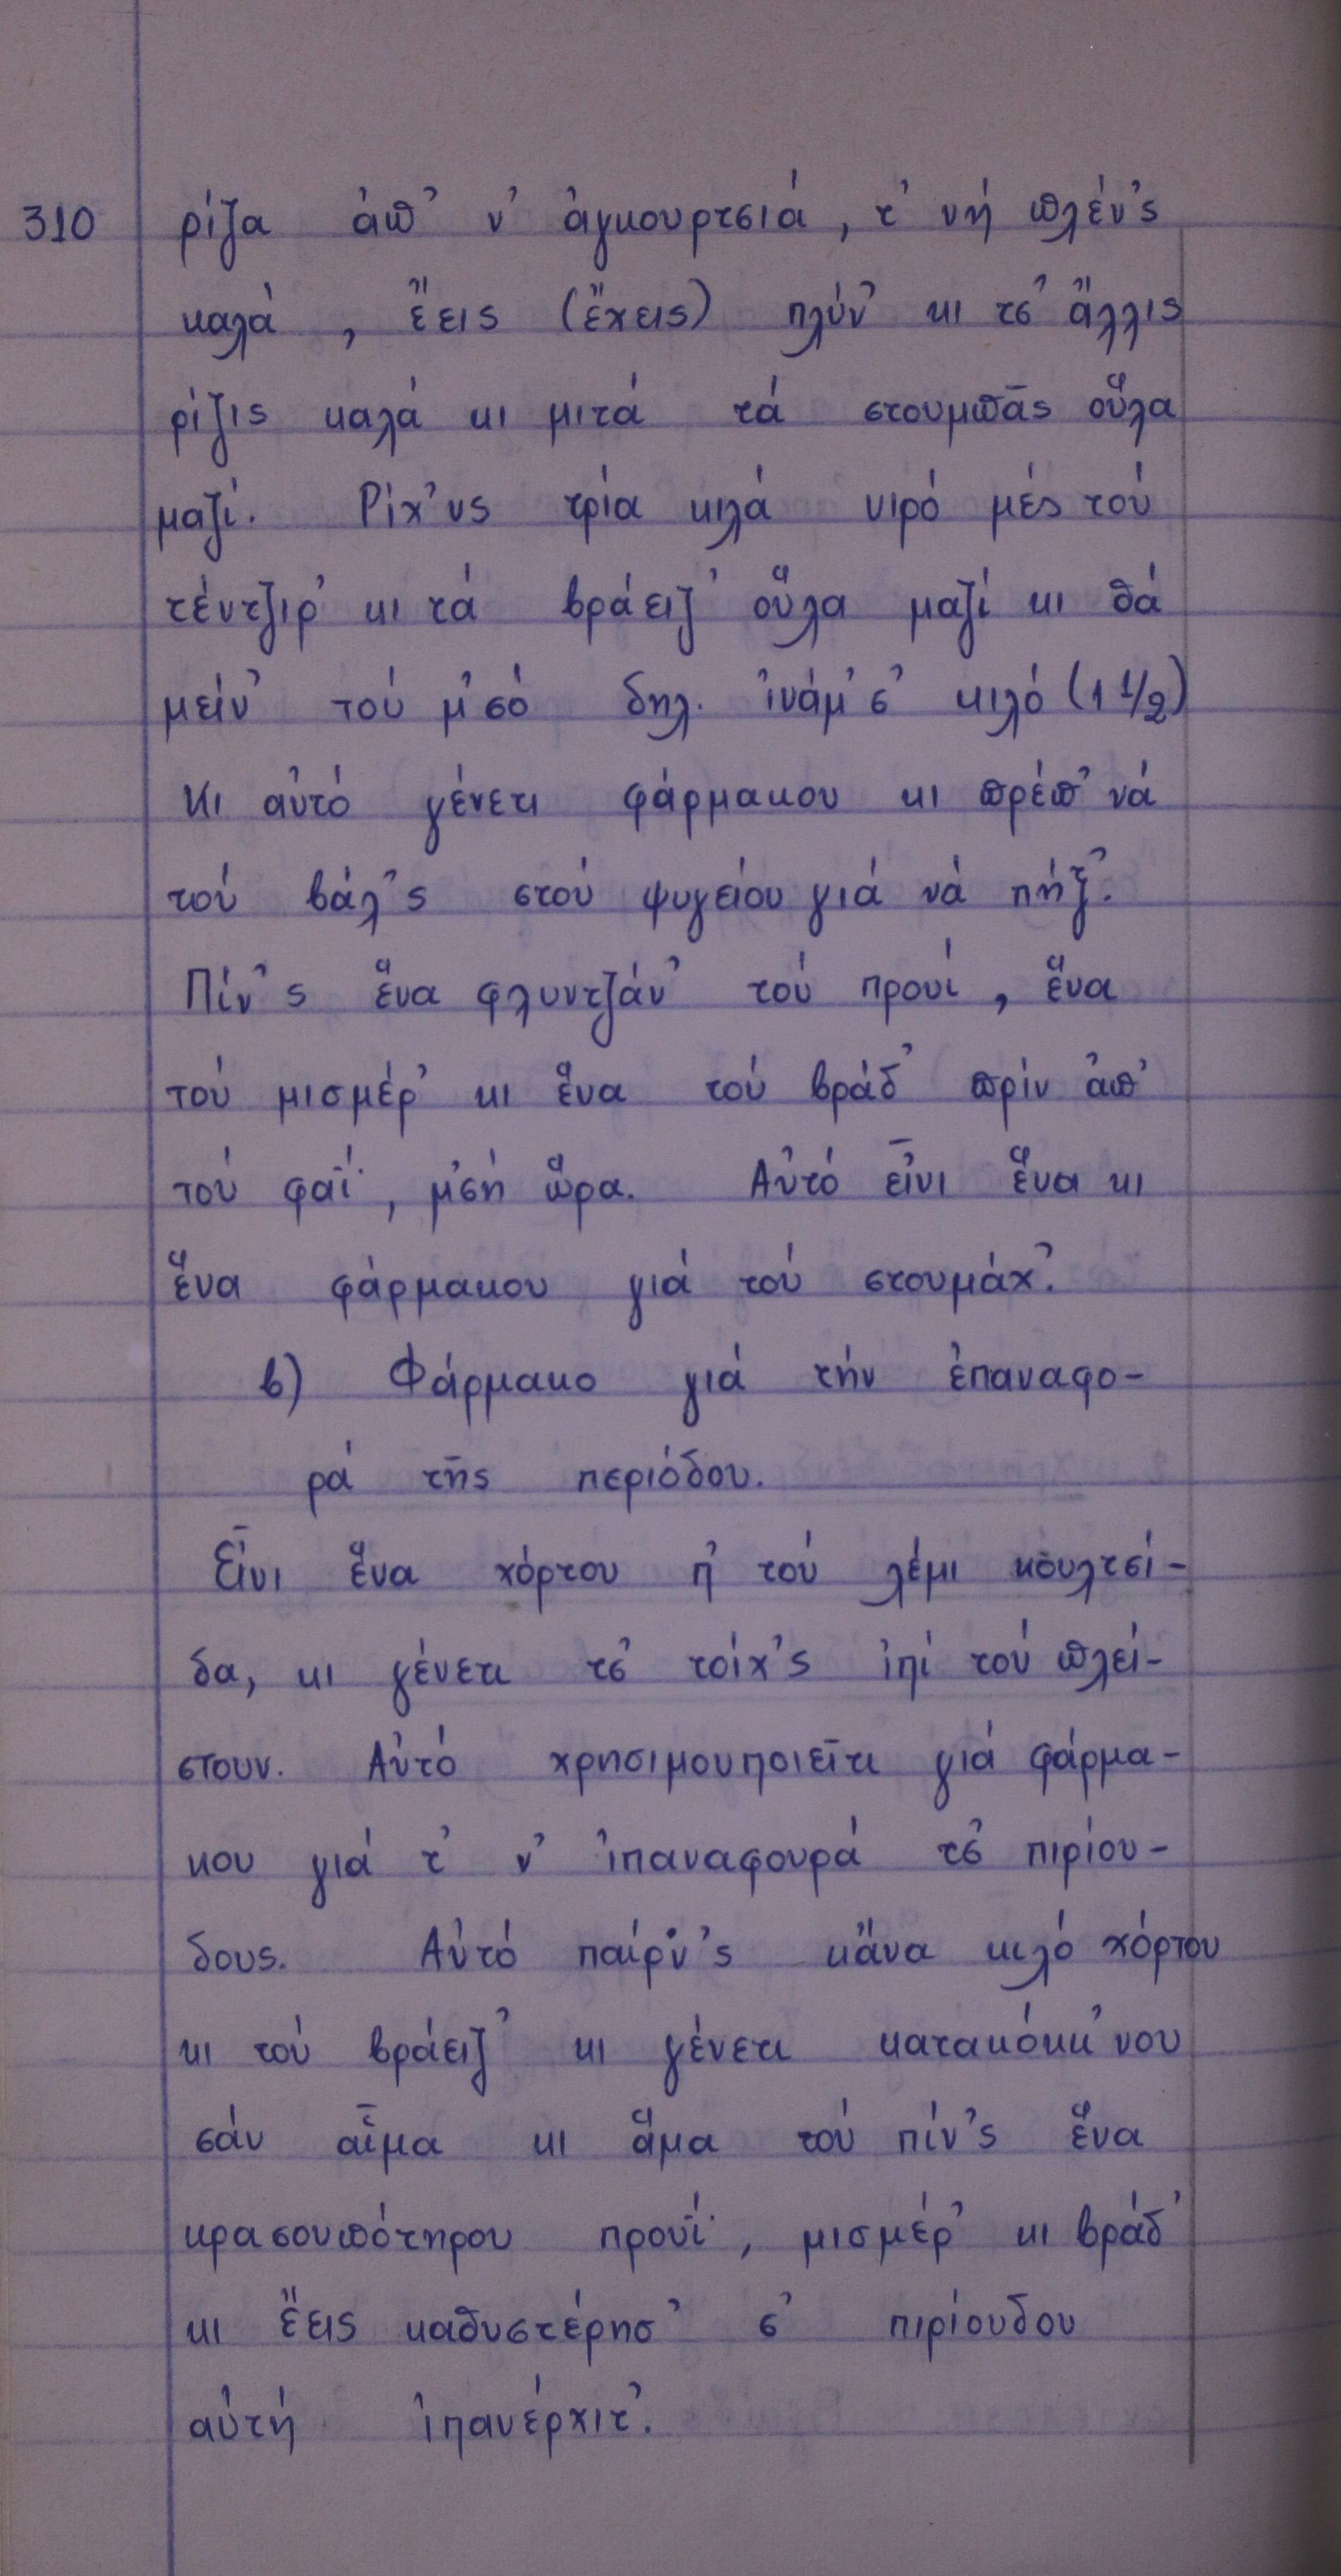 310 ρίζα ἀπ' ν' ἀγκουρτσιά, τ' νή πλέν'ς
καλά, ἔεις (ἔχεις) πλύν' κι τσ' ἄλλις
ρίζις καλά κι μιτά τά στουμπᾶς οὕλα
μαζί. Ρίχ'νς τρία κιλά νιρό μές τού
τέντζιρ' κι τά βράειζ' οὕλα μαζί κι θά
μείν' τού μ'σό δηλ. ἰνάμ'σ' κιλό (1 1/2)
Κι αὐτό γένετι φάρμακου κι πρέπ' νά
τού βάλ'ς στού ψυγείου γιά νά πήζ'.
Πίν'ς ἕνα φλυντζάν' τού προυί, ἕνα
τού μισμέρ' κι ἕνα τού βράδ' πρίν ἀπ'
τού φαΐ, μ'σή ὥρα. Αὐτό εἶνι ἕνα κι
ἕνα φάρμακου γιά τού στουμάχ'.
β) Φάρμακο γιά τήν ἐπαναφο-
ρά τῆς περιόδου.
Εἶνι ἕνα χόρτου π' τού λέμι κουλτσί-
δα, κι γένετι τσ' τοίχ'ς ἰπί τού πλεί-
στουν. Αὐτό χρησιμουποιεῖτι γιά φάρμα-
κου γιά τ' ν' ἰπαναφουρά τσ' πιρίου-
δους. Αὐτό παίρν'ς κἄνα κιλό χόρτου
κι τού βράειζ' κι γένετι κατακόκκ'νου
σάν αἷμα κι ἅμα τού πίν'ς ἕνα
κρασουπότηρου προυΐ, μισμέρ' κι βράδ'
κι ἔεις καθυστέρησ' σ' πιρίουδου
αὐτή ἰπανέρχιτ'.